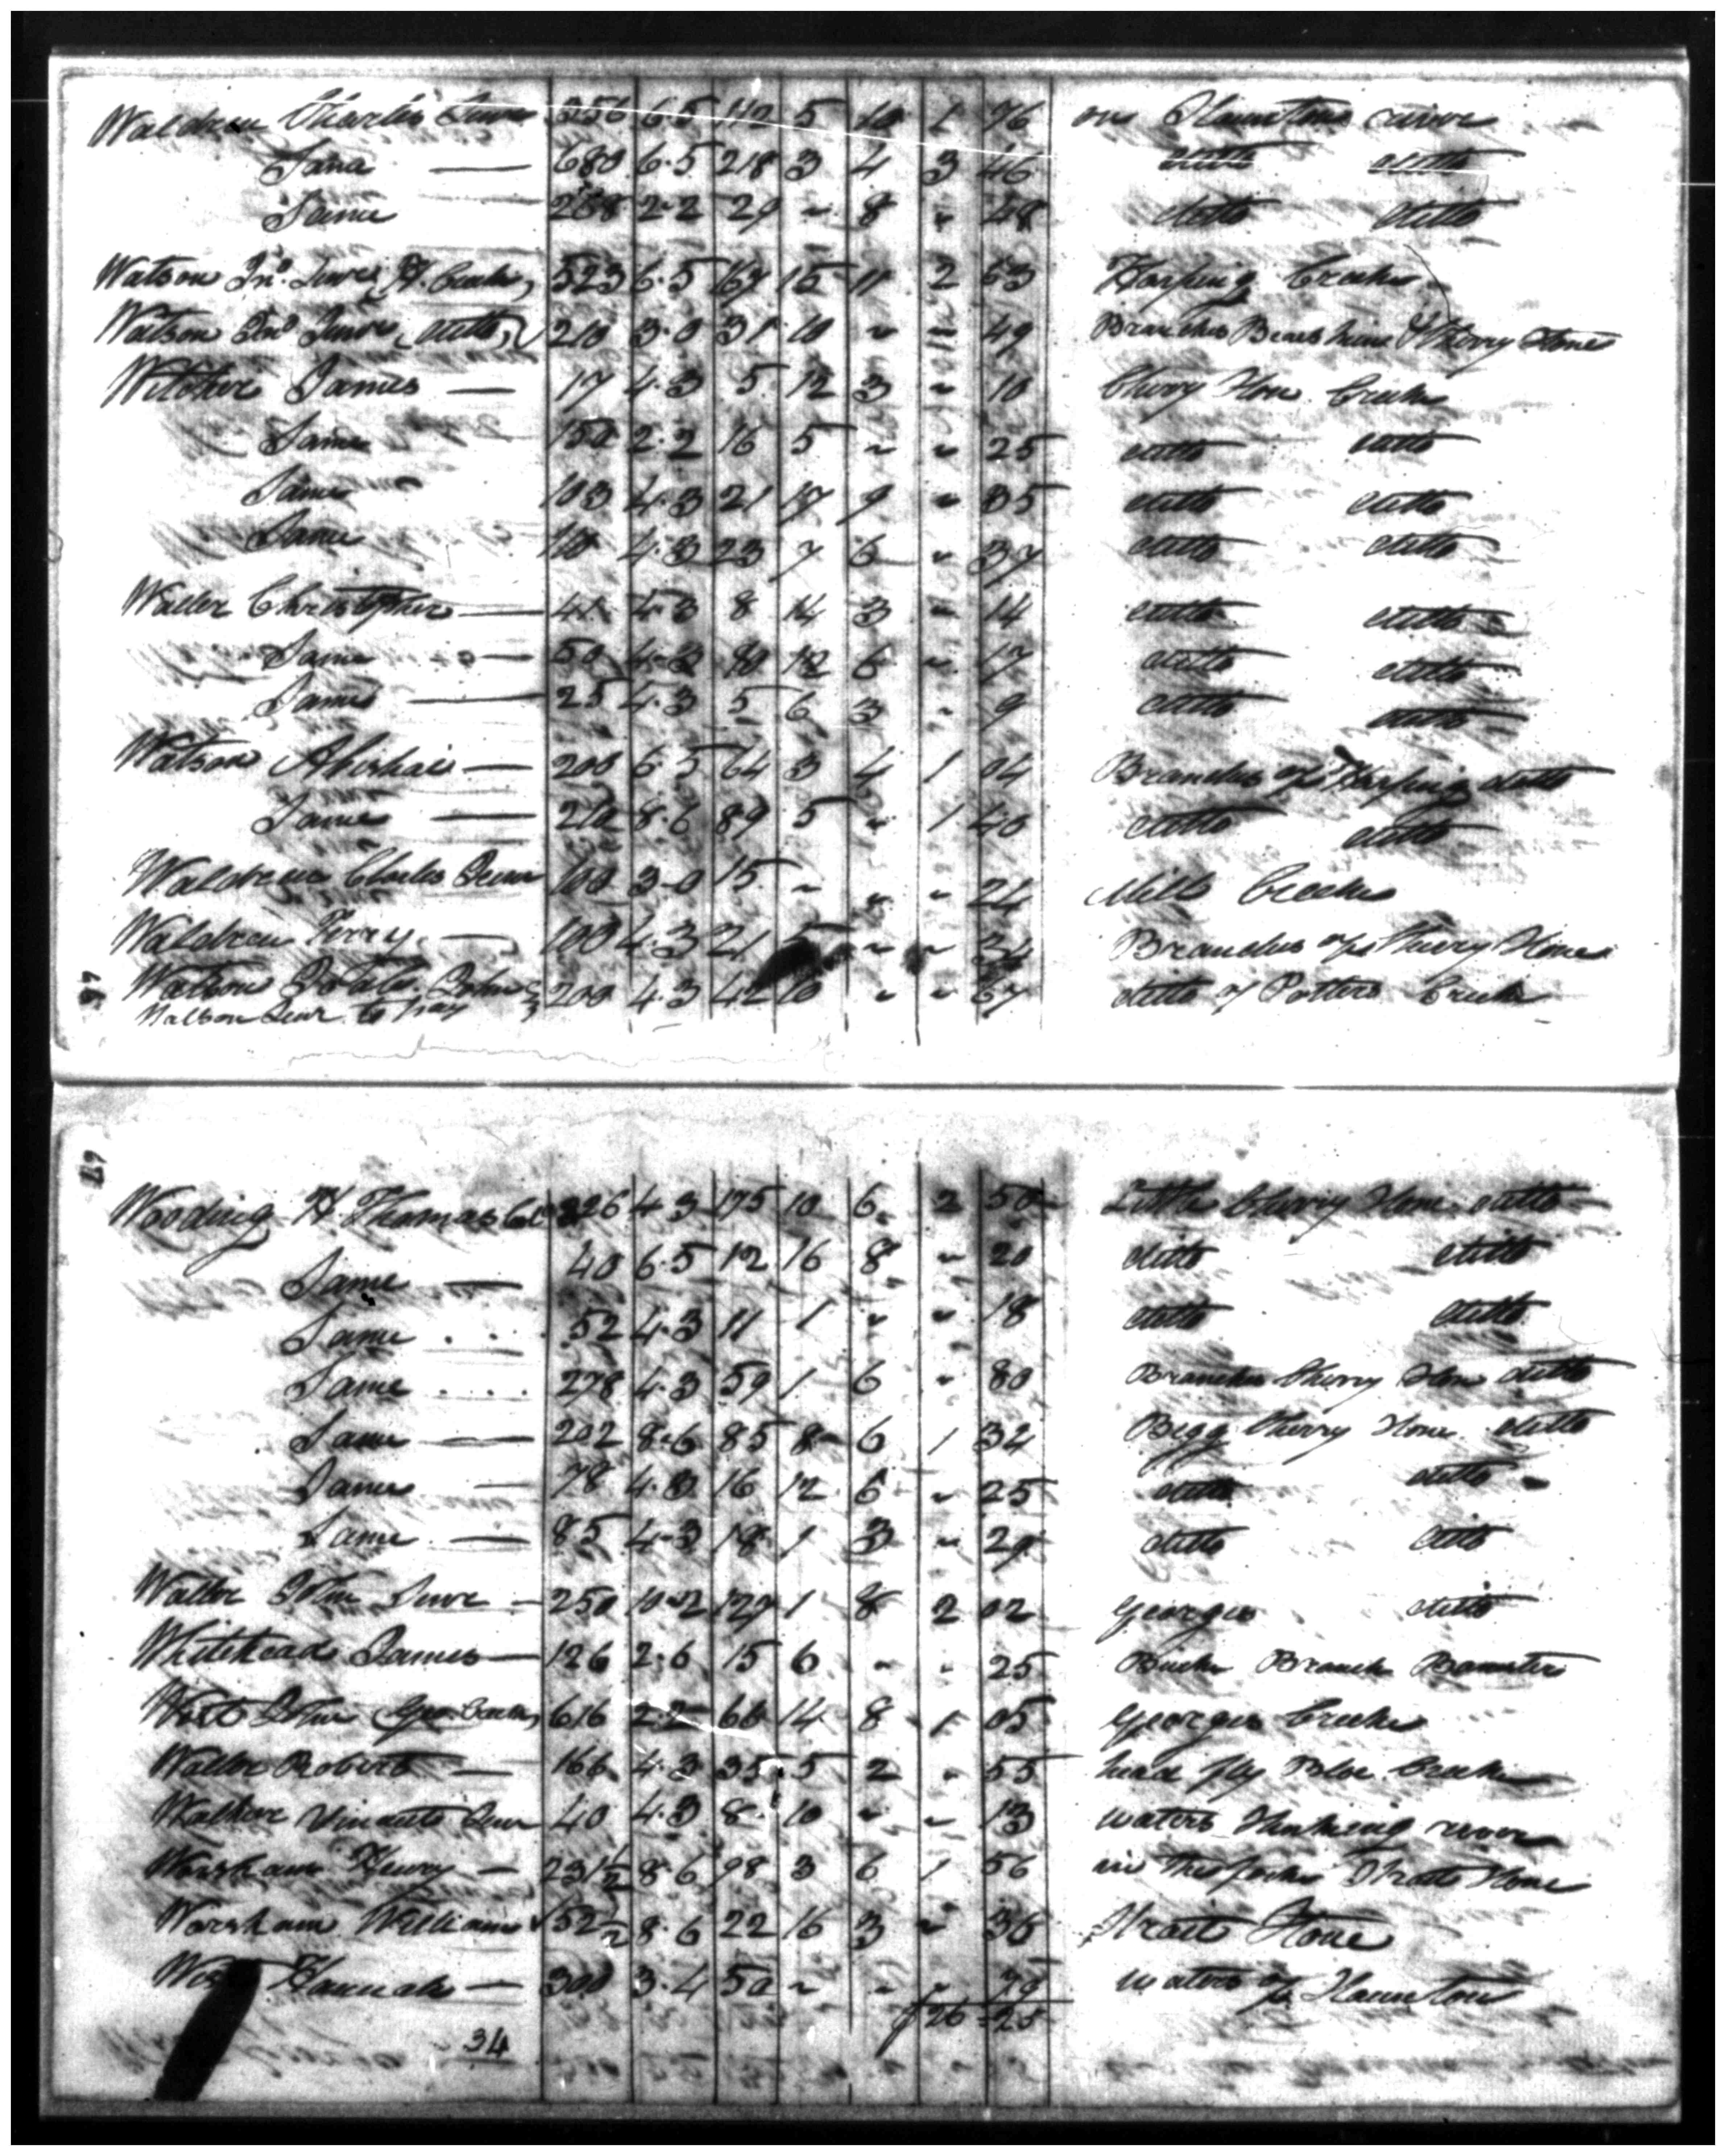 Waldren Charles Junr 356 6.5 112 5 10 1 76 on Staunton river
Same — 680 6.5 218 3 4 3 46 ditto ditto
Same 268 2.2 29 ~ 8 ~ 48 ditto ditto
Watson Jno. Senr (H. Creek) 523 6.5 167 15 11 2 63 Harping Creek
Watson Jno Junr (ditto) 210 3.0 31 10 ~ ~ 49 Branches Cherry Stone
Witcher James — 17 4.3 5 12 3 ~ 10 Cherry Stone Creek
Same 150 2.2 16 5 ~ ~ 25 ditto ditto
Same 103 4.3 21 17 9 ~ 35 ditto ditto
Same 110 4.3 23 7 6 ~ 37 ditto ditto
Waller Christopher — 41 4.3 8 14 3 ~ 14 ditto ditto
Same — 50 4.3 10 12 6 ~ 17 ditto ditto
Same — 25 4.3 5 6 3 ~ 9 ditto ditto
Watson Abishai — 200 6.5 64 3 4 1 04 Branches of Harping ditto
Same — 210 8.6 89 5 ~ 1 40 ditto ditto
Waldren Charles Senr 100 3.0 15 ~ ~ ~ 24 Mill Creek
Waldren Terry — 100 4.3 21 5 ~ ~ 34 Branches of Cherry Stone
Watson John 200 4.3 42 10 ~ ~ 67 ditto of Potters Creek
Watson Senr. to pay
66
67
Wooding H. Thomas Col 826 4.3 175 10 6 2 50 Little Cherry Stone ditto
Same — 40 6.5 12 16 8 ~ 20 ditto ditto
Same 52 4.3 11 1 ~ ~ 18 ditto ditto
Same 278 4.3 59 1 6 ~ 80 Branches Cherry Stone ditto
Same — 202 8.6 85 8 6 1 34 Bigg Cherry Stone ditto
Same — 78 4.3 16 12 6 ~ 25 ditto ditto
Same — 85 4.3 18 1 3 ~ 29 ditto ditto
Waller John Junr — 250 10.2 127 1 8 2 02 Georges ditto
Whitehead James — 126 2.6 15 6 ~ ~ 25 Branch Banister
West John (Geo. Creek) 616 2.2 66 14 8 1 05 Georges Creek
Waller Robert — 166 4.3 35 5 2 ~ 55 head fly Blow Creek
Walker Vincent Senr 40 4.3 8 10 ~ ~ 13 waters Stinking river
Worsham Henry — 231½ 8.6 98 3 6 1 56 in the forks Strait Stone
Worsham William 52½ 8.6 22 16 3 ~ 36 Strait Stone
Hannah — 300 3.4 50 ~ ~ ~ 79 waters of Staunton
26 25
34